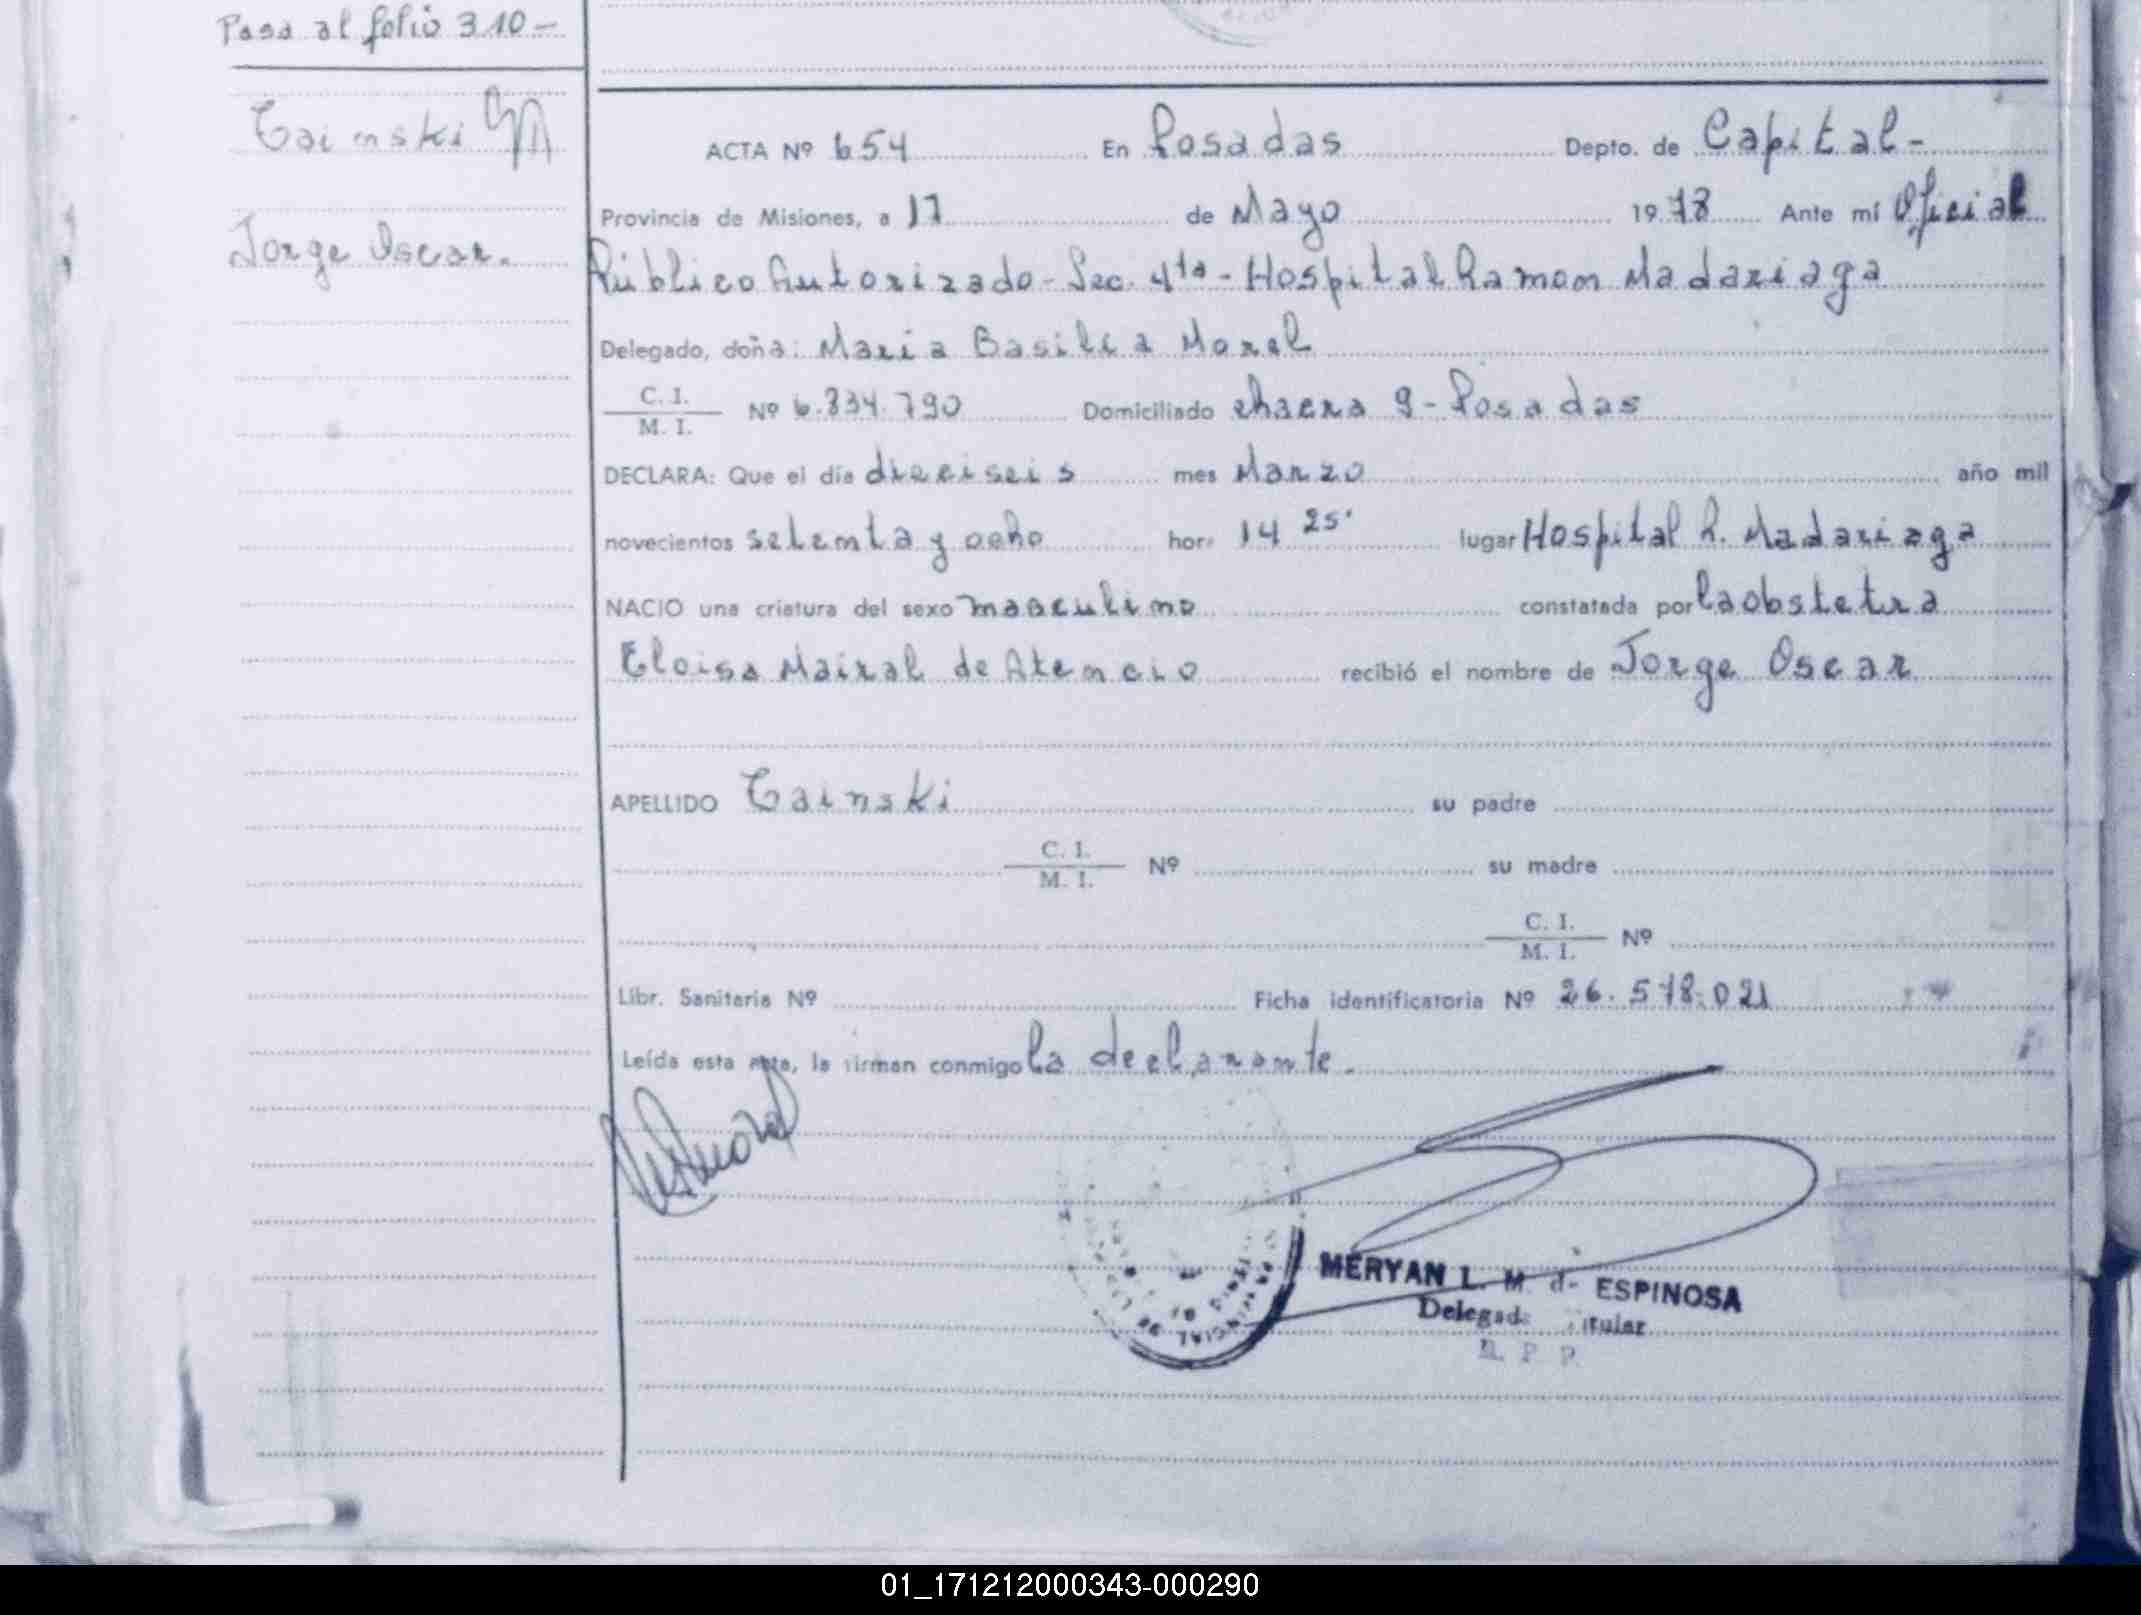 Pasa al folio 310-
Gainski
Jorge Oscar.
ACTA Nº 654 En Posadas Depto. de Capital-
Provincia de Misiones, a 17 de Mayo 1978 Ante mí Oficial
Público Autorizado - Sec. 4ta - Hospital Ramon Madariaga
Delegado, doña: Maria Basilia Morel
C. I.
M. I.
Nº 6.834.790 Domiciliado chacra 9 - Posadas
DECLARA: Que el día dieciseis mes Marzo año mil
novecientos setenta y ocho hora 14 25' lugar Hospital R. Madariaga
NACIO una criatura del sexo masculino constatada por la obstetra
Eloisa Mairal de Atencio recibió el nombre de Jorge Oscar
APELLIDO Gainski su padre
C. I.
M. I.
Nº su madre
C. I.
M. I.
Nº
Libr. Sanitaria Nº Ficha identificatoria Nº 26.578.021
Leída esta acta, la firman conmigo la declarante.
MERYAN L. M. de ESPINOSA
Delegada Titular
R. P. P.
01_171212000343-000290